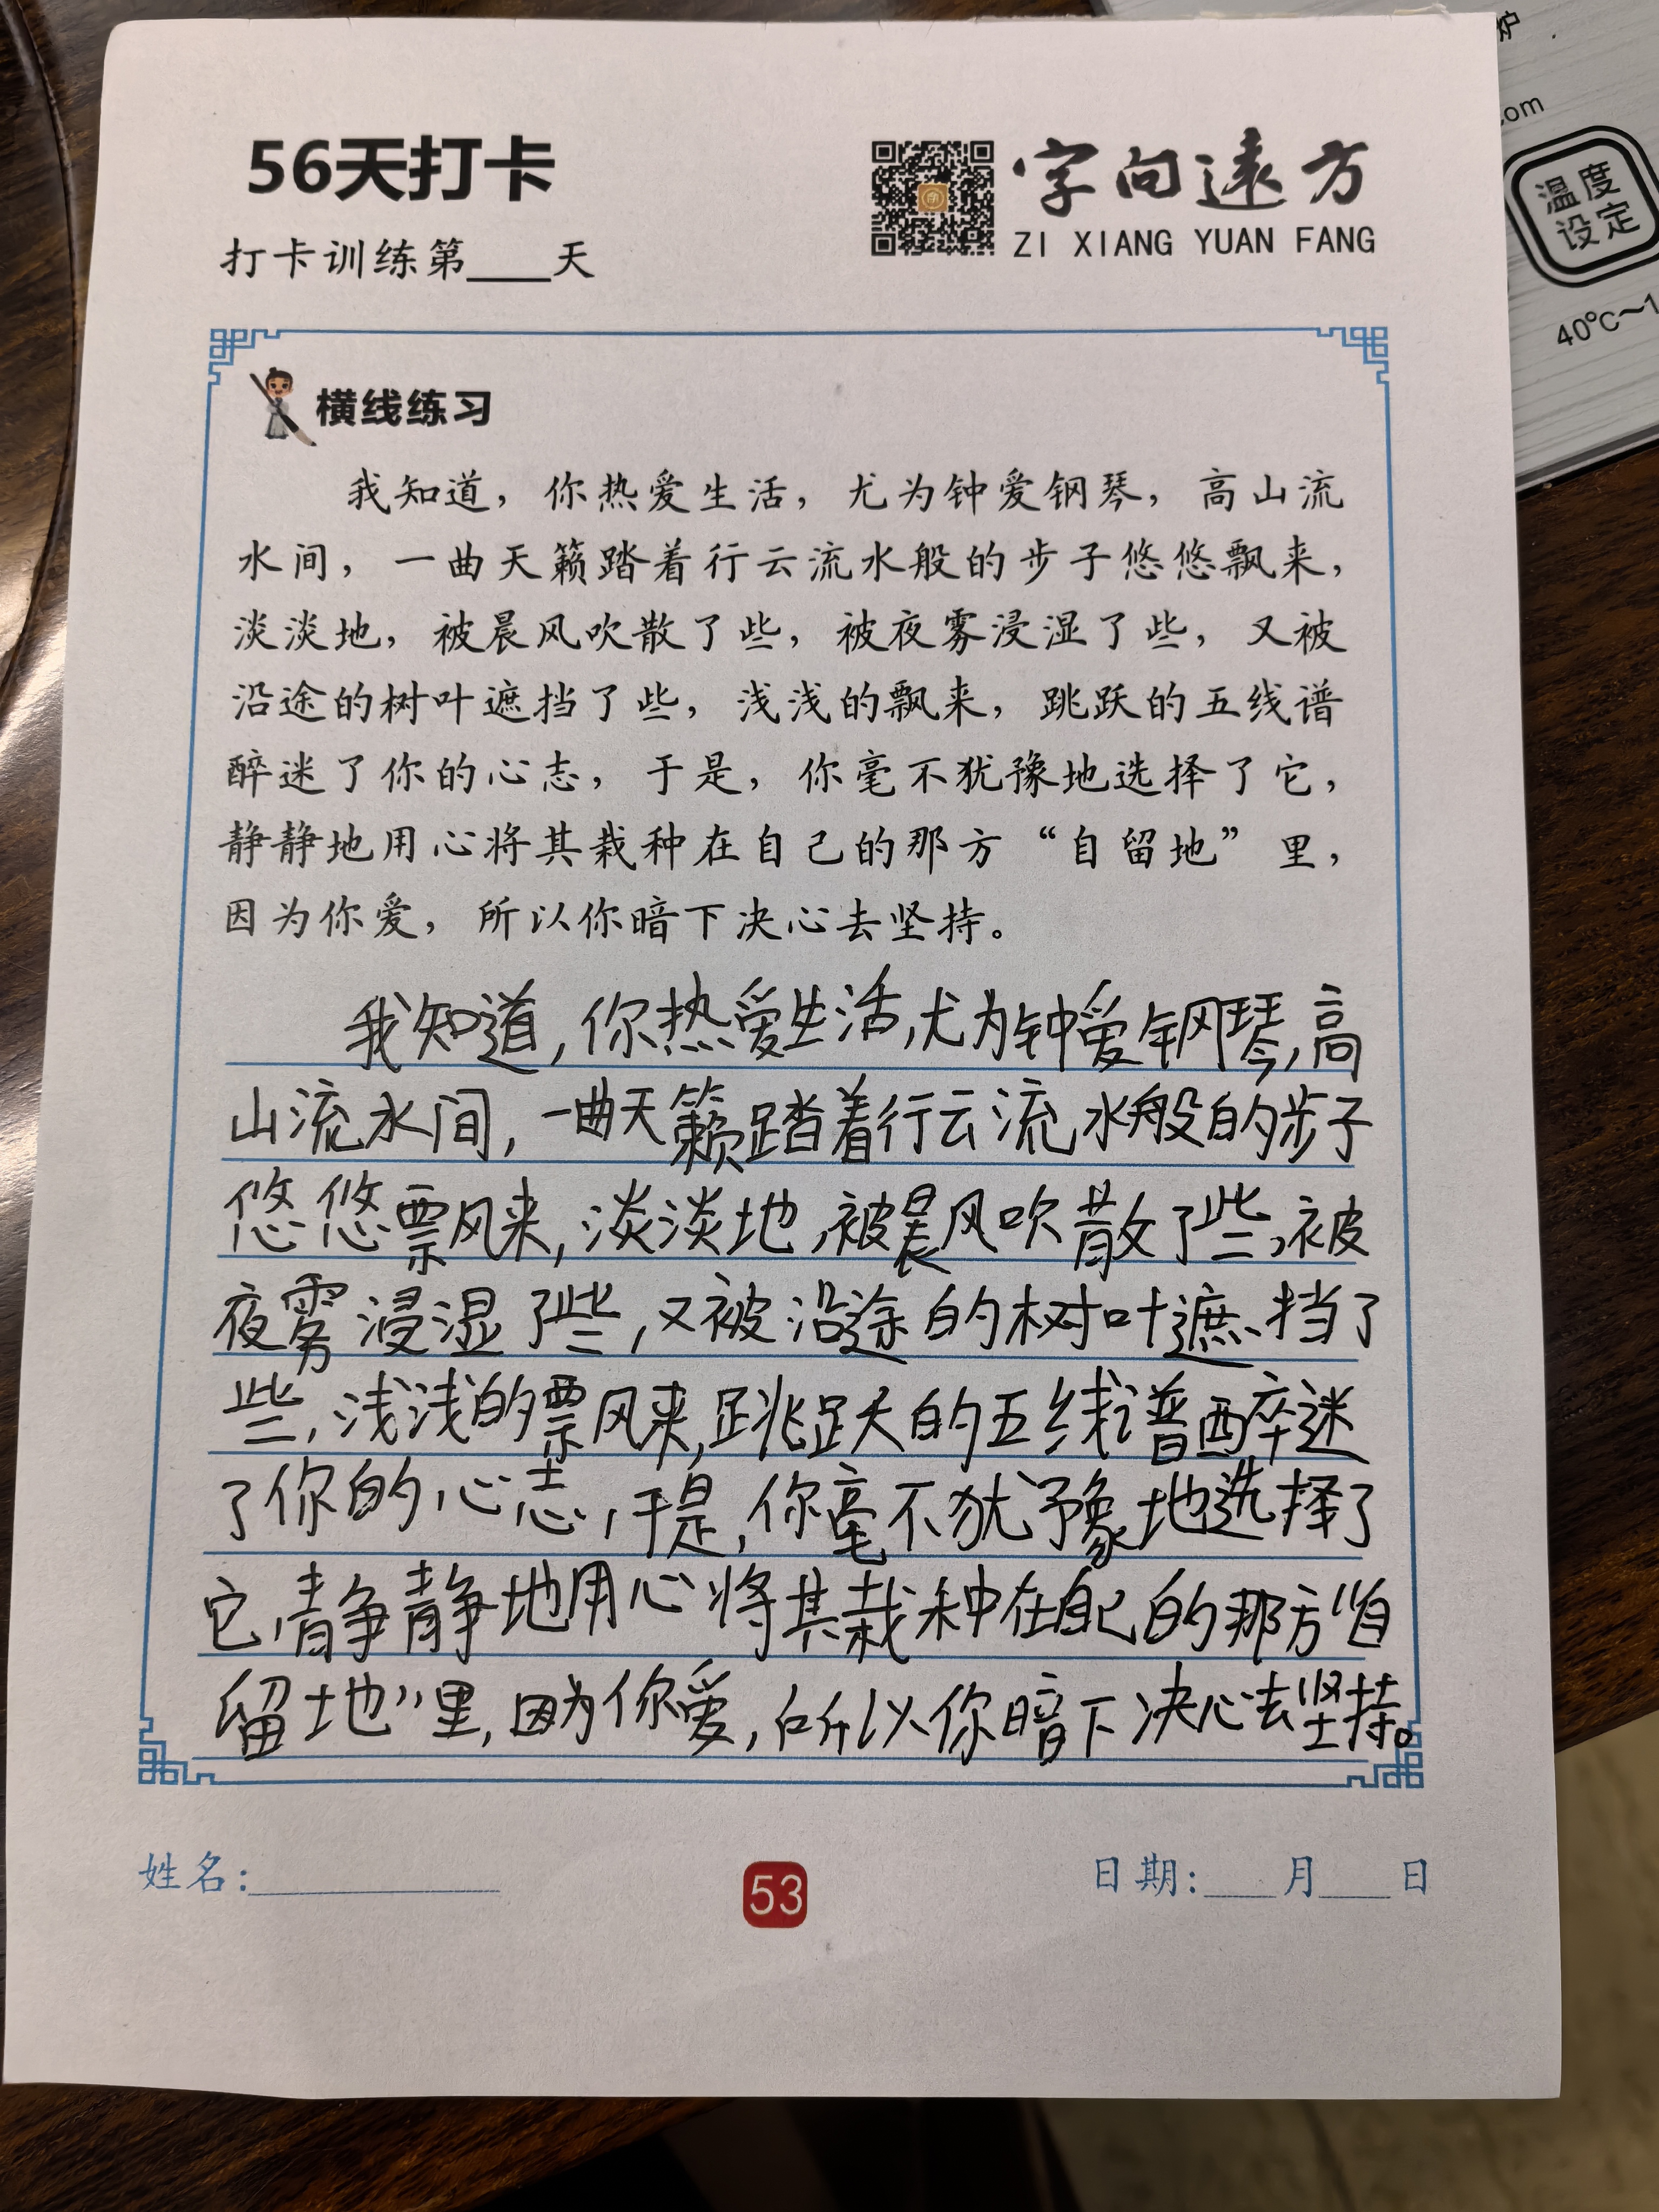 56天打卡
打卡训练第____天
字向遠方
ZI XIANG YUAN FANG
炉
.com
温度
设定
40℃~1
横线练习
我知道，你热爱生活，尤为钟爱钢琴，高山流
水间，一曲天籁踏着行云流水般的步子悠悠飘来，
淡淡地，被晨风吹散了些，被夜雾浸湿了些，又被
沿途的树叶遮挡了些，浅浅的飘来，跳跃的五线谱
醉迷了你的心志，于是，你毫不犹豫地选择了它，
静静地用心将其栽种在自己的那方“自留地”里，
因为你爱，所以你暗下决心去坚持。
我知道，你热爱生活，尤为钟爱钢琴，高
山流水间，一曲天籁踏着行云流水般的步子
悠悠飘来，淡淡地，被晨风吹散了些，被
夜雾浸湿了些，又被沿途的树叶遮挡了
些，浅浅的飘来，跳跃的五线谱醉迷
了你的心志，于是，你毫不犹豫地选择了
它，静静地用心将其栽种在自己的那方“自
留地”里，因为你爱，所以你暗下决心去坚持。
姓名：
53
日期：___月___日